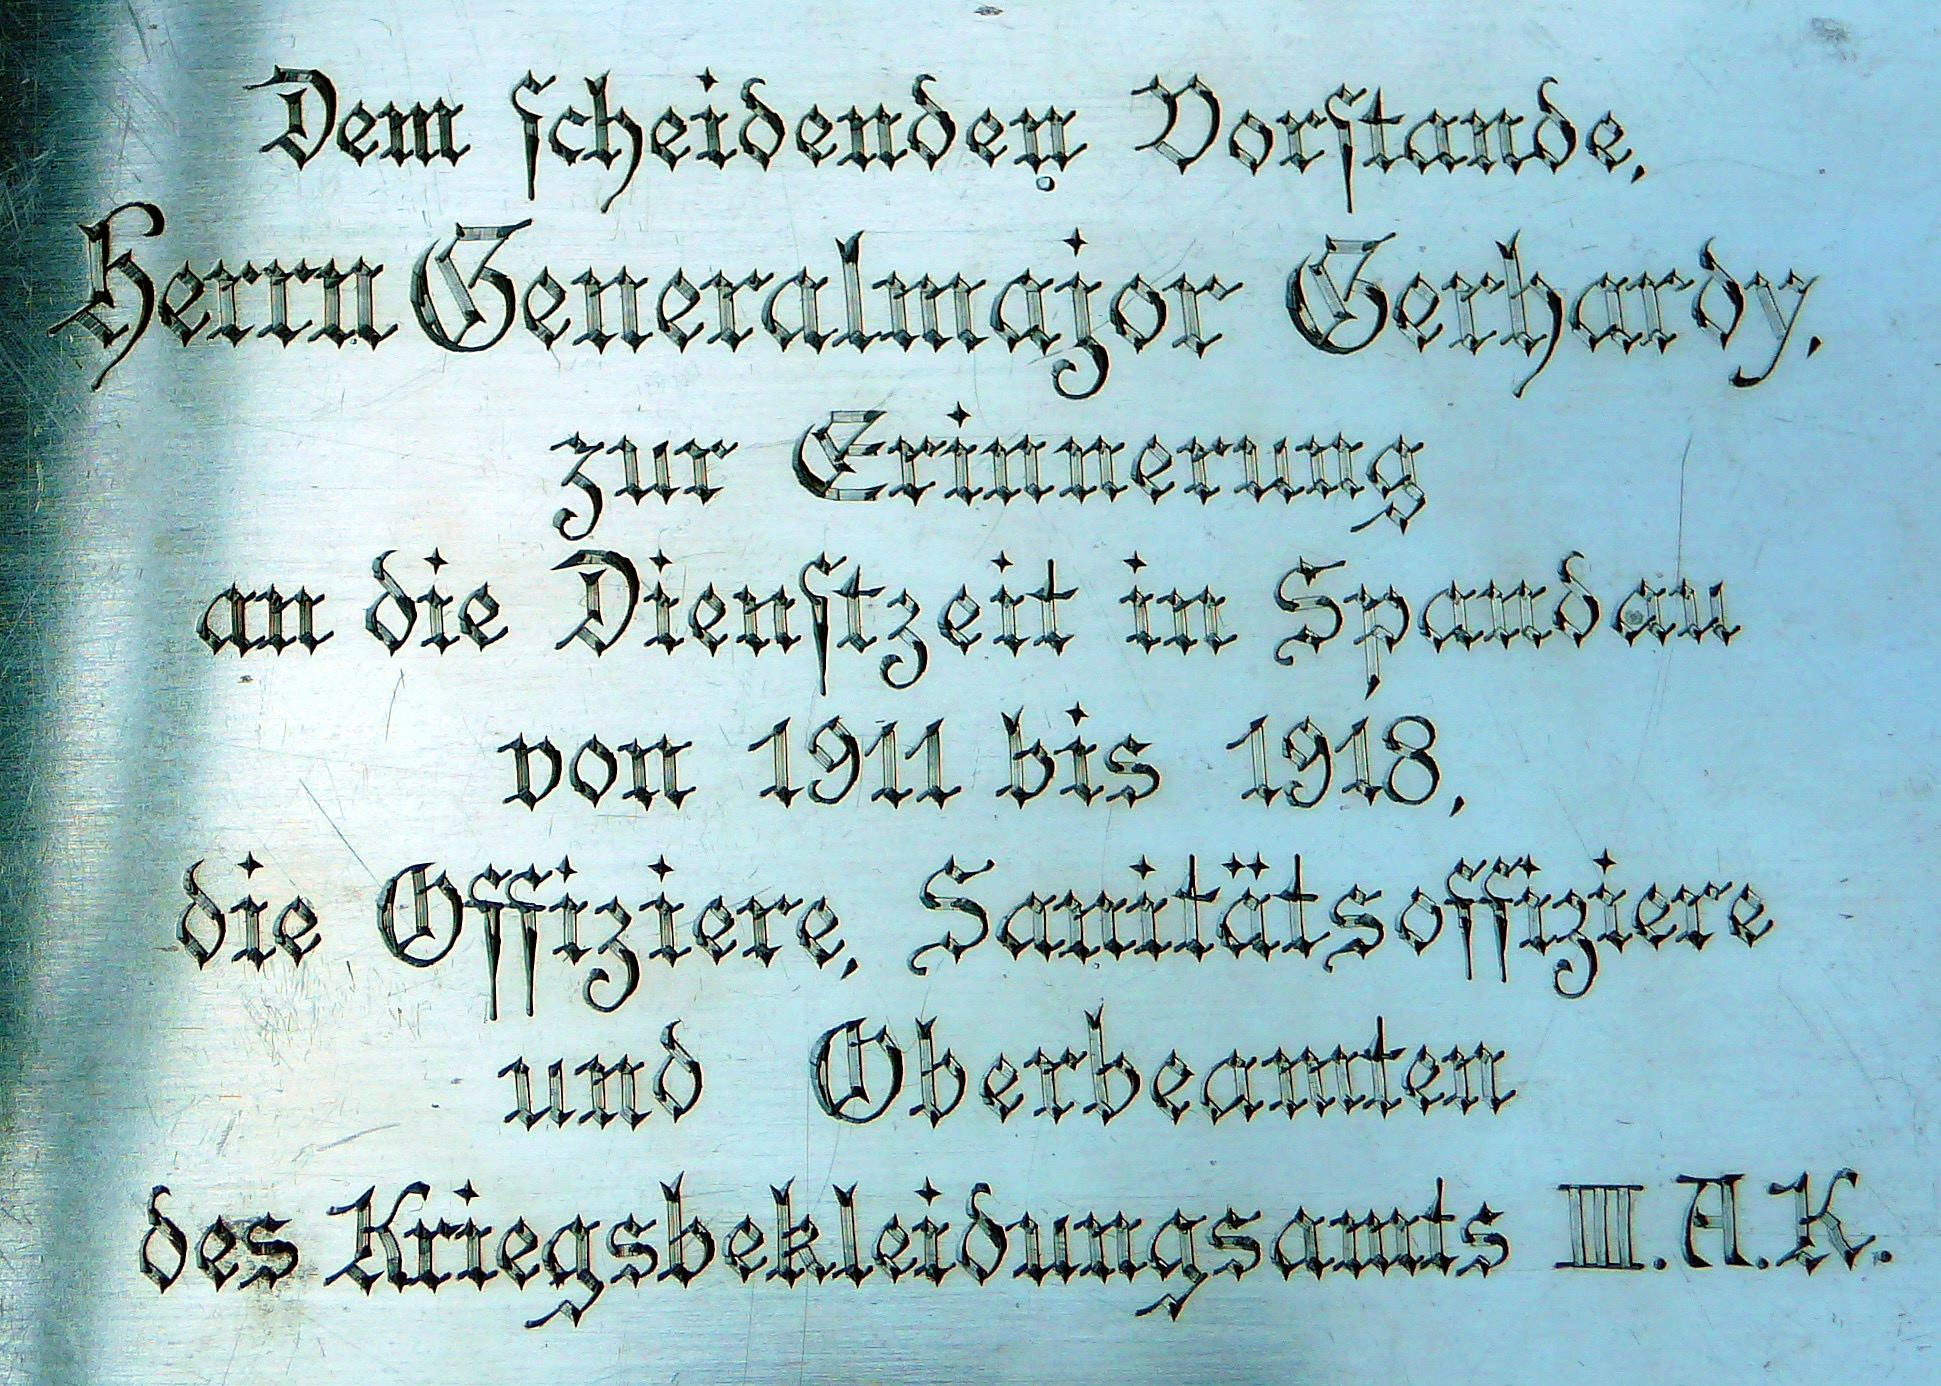 Dem scheidenden Vorstande,
Herrn Generalmajor Gerhardy,
zur Erinnerung
an die Dienstzeit in Spandau
von 1911 bis 1918,
die Offiziere, Sanitätsoffiziere
und Oberbeamten
des Kriegsbekleidungsamts III. A. K.